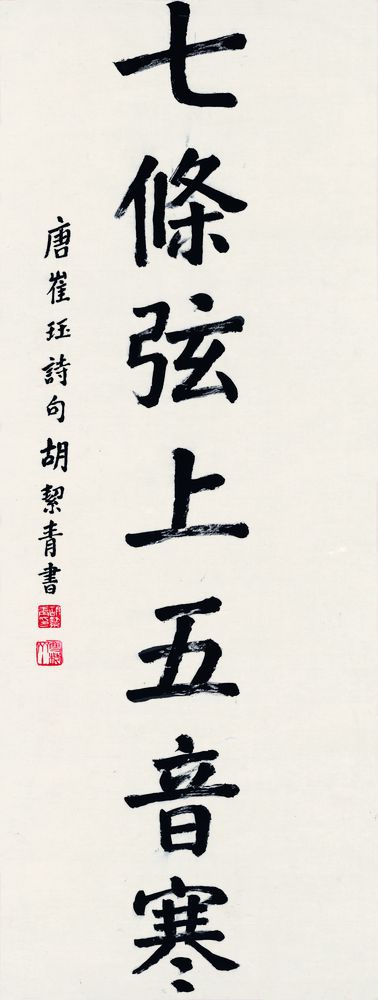 七條弦上五音寒
唐崔珏詩句胡絜青書